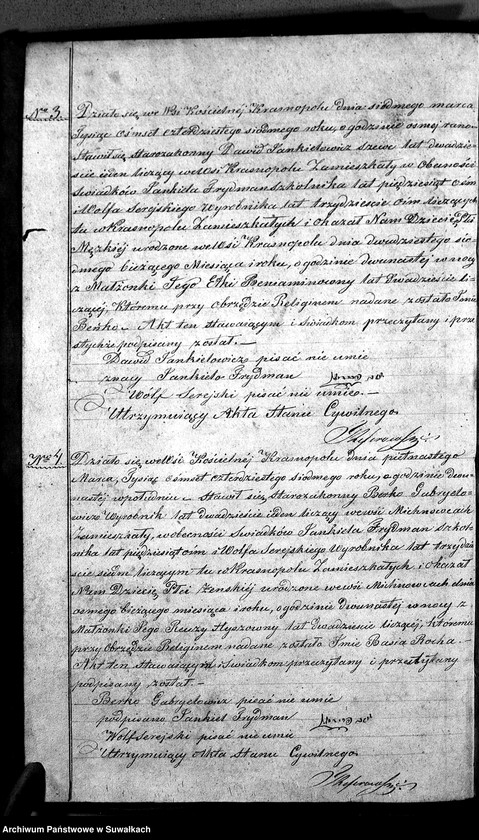 Nro 3.
Działo się we Wsi Kościelnej Krasnopolu dnia siodmego marca
Tysiąc ośmset czterdziestego siodmego roku, o godzinie osmej rano
Stawił się Starozakonny Dawid Jankielowicz szewc lat dwadzie-
scie ieden liczący we Wsi Krasnopolu Zamieszkały w Obecności
Swiadków Jankiela Frydmana szkolnika lat pięcdziesiąt ośm
i Wolfa Serejskiego Wyrobnika lat trzydziescie liczących
tu w Krasnopolu Zamieszkałych i okazał Nam Dziecię Płci
Męzkiej urodzone we Wsi Krasnopolu dnia dwudziestego sio-
dmego bieżącego Miesiąca i roku, o godzinie dwunastej w nocy
z Małżonki Jego Elki Beniaminowny lat Dwadziescie li-
czącej, Któremu przy obrzędzie Religinem nadane zostało Imie
Berko - Akt ten stawaiącym i swiadkom przeczytany i prze
podpisany został. -
Dawid Jankielowicz pisać nie umie
Jankiel Frydman
Wolf Serejski pisać nie umie
Utrzymuiący Akta Stanu Cywilnego
Nro 4.
Działo się we Wsi Kościelnej Krasnopolu dnia pietnastego
Marca, Tysiąc ośmset czterdziestego siodmego roku, o godzinie dwu-
nastej w południe - Stawił się Starozakonny Berko Gabryelo-
wicz Wyrobnik lat dwadziescie ieden liczący we wsi Michnowcach
Zamieszkały, w obecności Swiadków Jankiela Frydman szkol-
nika lat pięcdziesiąt ośm i Wolfa Serejskiego Wyrobnika lat trzydzie-
scie siedm liczącym tu w Krasnopolu Zamieszkałych i okazał
Nam Dziecię Płci Zenskiej urodzone we wsi Michnowcach dnia
osmego bieżącego miesiąca i roku, o godzinie dwunastej w nocy z
Małżonki Jego lat Dwadziescie liczącej, Któremu
przy Obrzędzie Religinem nadane zostało Imie Basia Rocha -
Akt ten stawaiącym i swiadkom przeczytany i
podpisany został -
Berko Gabryelowicz pisać nie umie
podpisano Jankiel Frydman
Wolf Serejski pisać nie umie
Utrzymuiący Akta Stanu Cywilnego
Archiwum Państwowe w Suwałkach